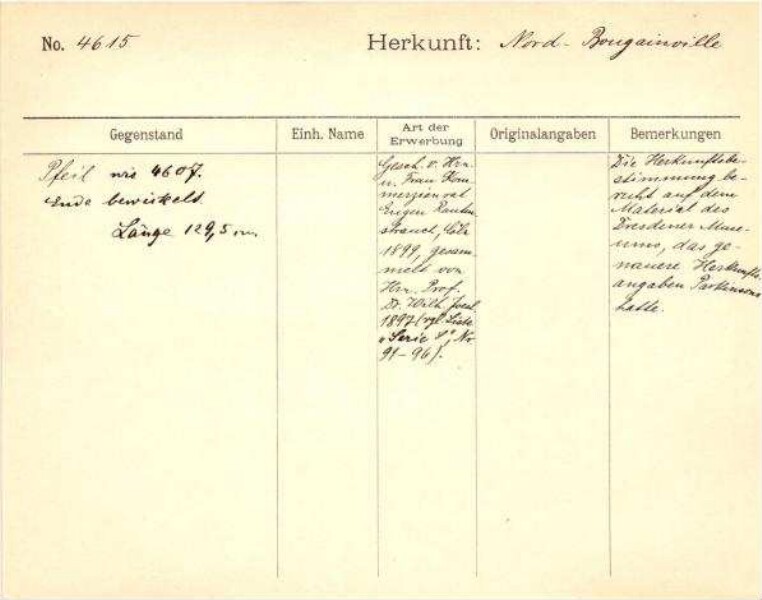 No. 4615
Herkunft: Nord-Bougainville
Gegenstand
Einh. Name
Art der
Erwerbung
Originalangaben
Bemerkungen
Pfeil wie 4607.
Ende bewickelt.
Länge 129,5 cm.
Gesch. v. Hrn.
u. Frau Kom-
merzienrat
Eugen Rauten-
strauch, Cöln
1899, gesam-
melt von
Hrn. Prof.
Dr. Wilh. Joest
1897 (vgl. Liste
"Serie S", No
91-96).
Die Herkunftsbe-
stimmung be-
ruht auf dem
Material des
Dresdener Muse-
ums, das ge-
nauere Herkunfts-
angaben Parkinsons
hatte.